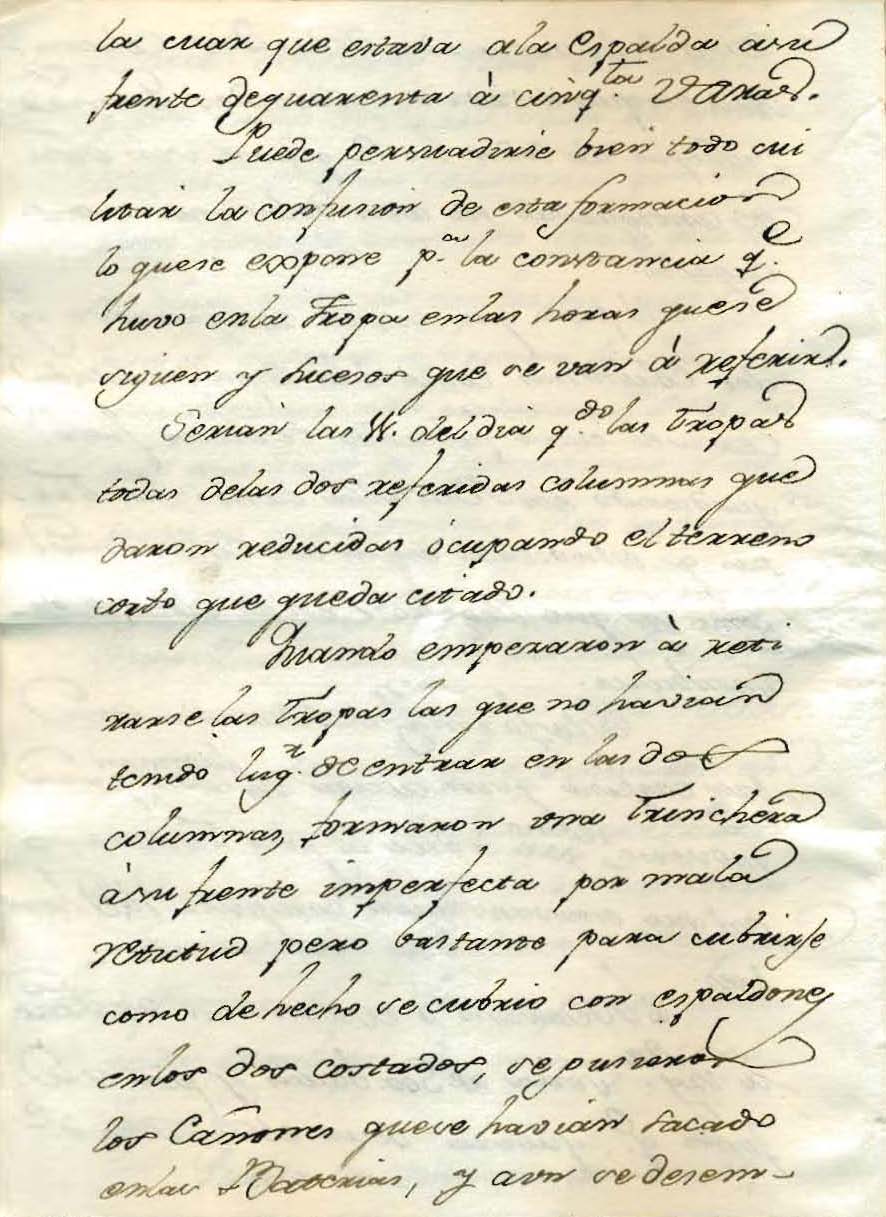 la cual que estava ala Espalda ásu
frente dequarenta à cinq.ta Varas.
Puede persuadirse bien todo mi
litar la confusion de esta formacion
lo quese expone p.a la constancia q.e
huvo enla Tropa enlas horas quese
siguen y sucesos que se van à referir.
Serian las del dia q.do las Tropas
todas delas dos referidas columnas que
daron reducidas ócupando el terreno
corto que queda citado.
Quando empezaron à reti
rarse las Tropas las que no havian
tenido lug.r de entrar en las dos
columnas, formaron una Trinchera
àsu frente imperfecta por mala
rectitud pero bastante para cubrirse
como de hecho se cubrio con espaldones
enlos dos costados, se pusieron
los Cañones quese havian sacado
enlas Baterias, y aun se desem-